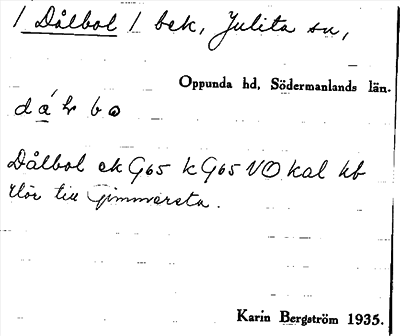 / Dålbol / bek, Julita sn,
Oppunda hd, Södermanlands län.
Dålbol ek G65 k G65 VO kal kb
hör till Gimmersta.
Karin Bergström 1935.